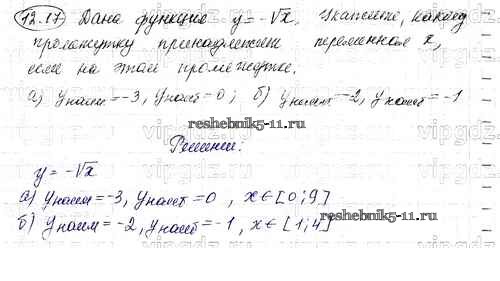 12.17 Дана функция y = -√x. Укажите, какому
промежутку принадлежит переменная x,
если на этом промежутке:
а) yнаим = -3, yнаиб = 0; б) yнаим = -2, yнаиб = -1
reshebnik5-11.ru
Решение:
y = -√x
а) yнаим = -3, yнаиб = 0, x ∈ [0; 9]
б) yнаим = -2, yнаиб = -1, x ∈ [1; 4]
reshebnik5-11.ru